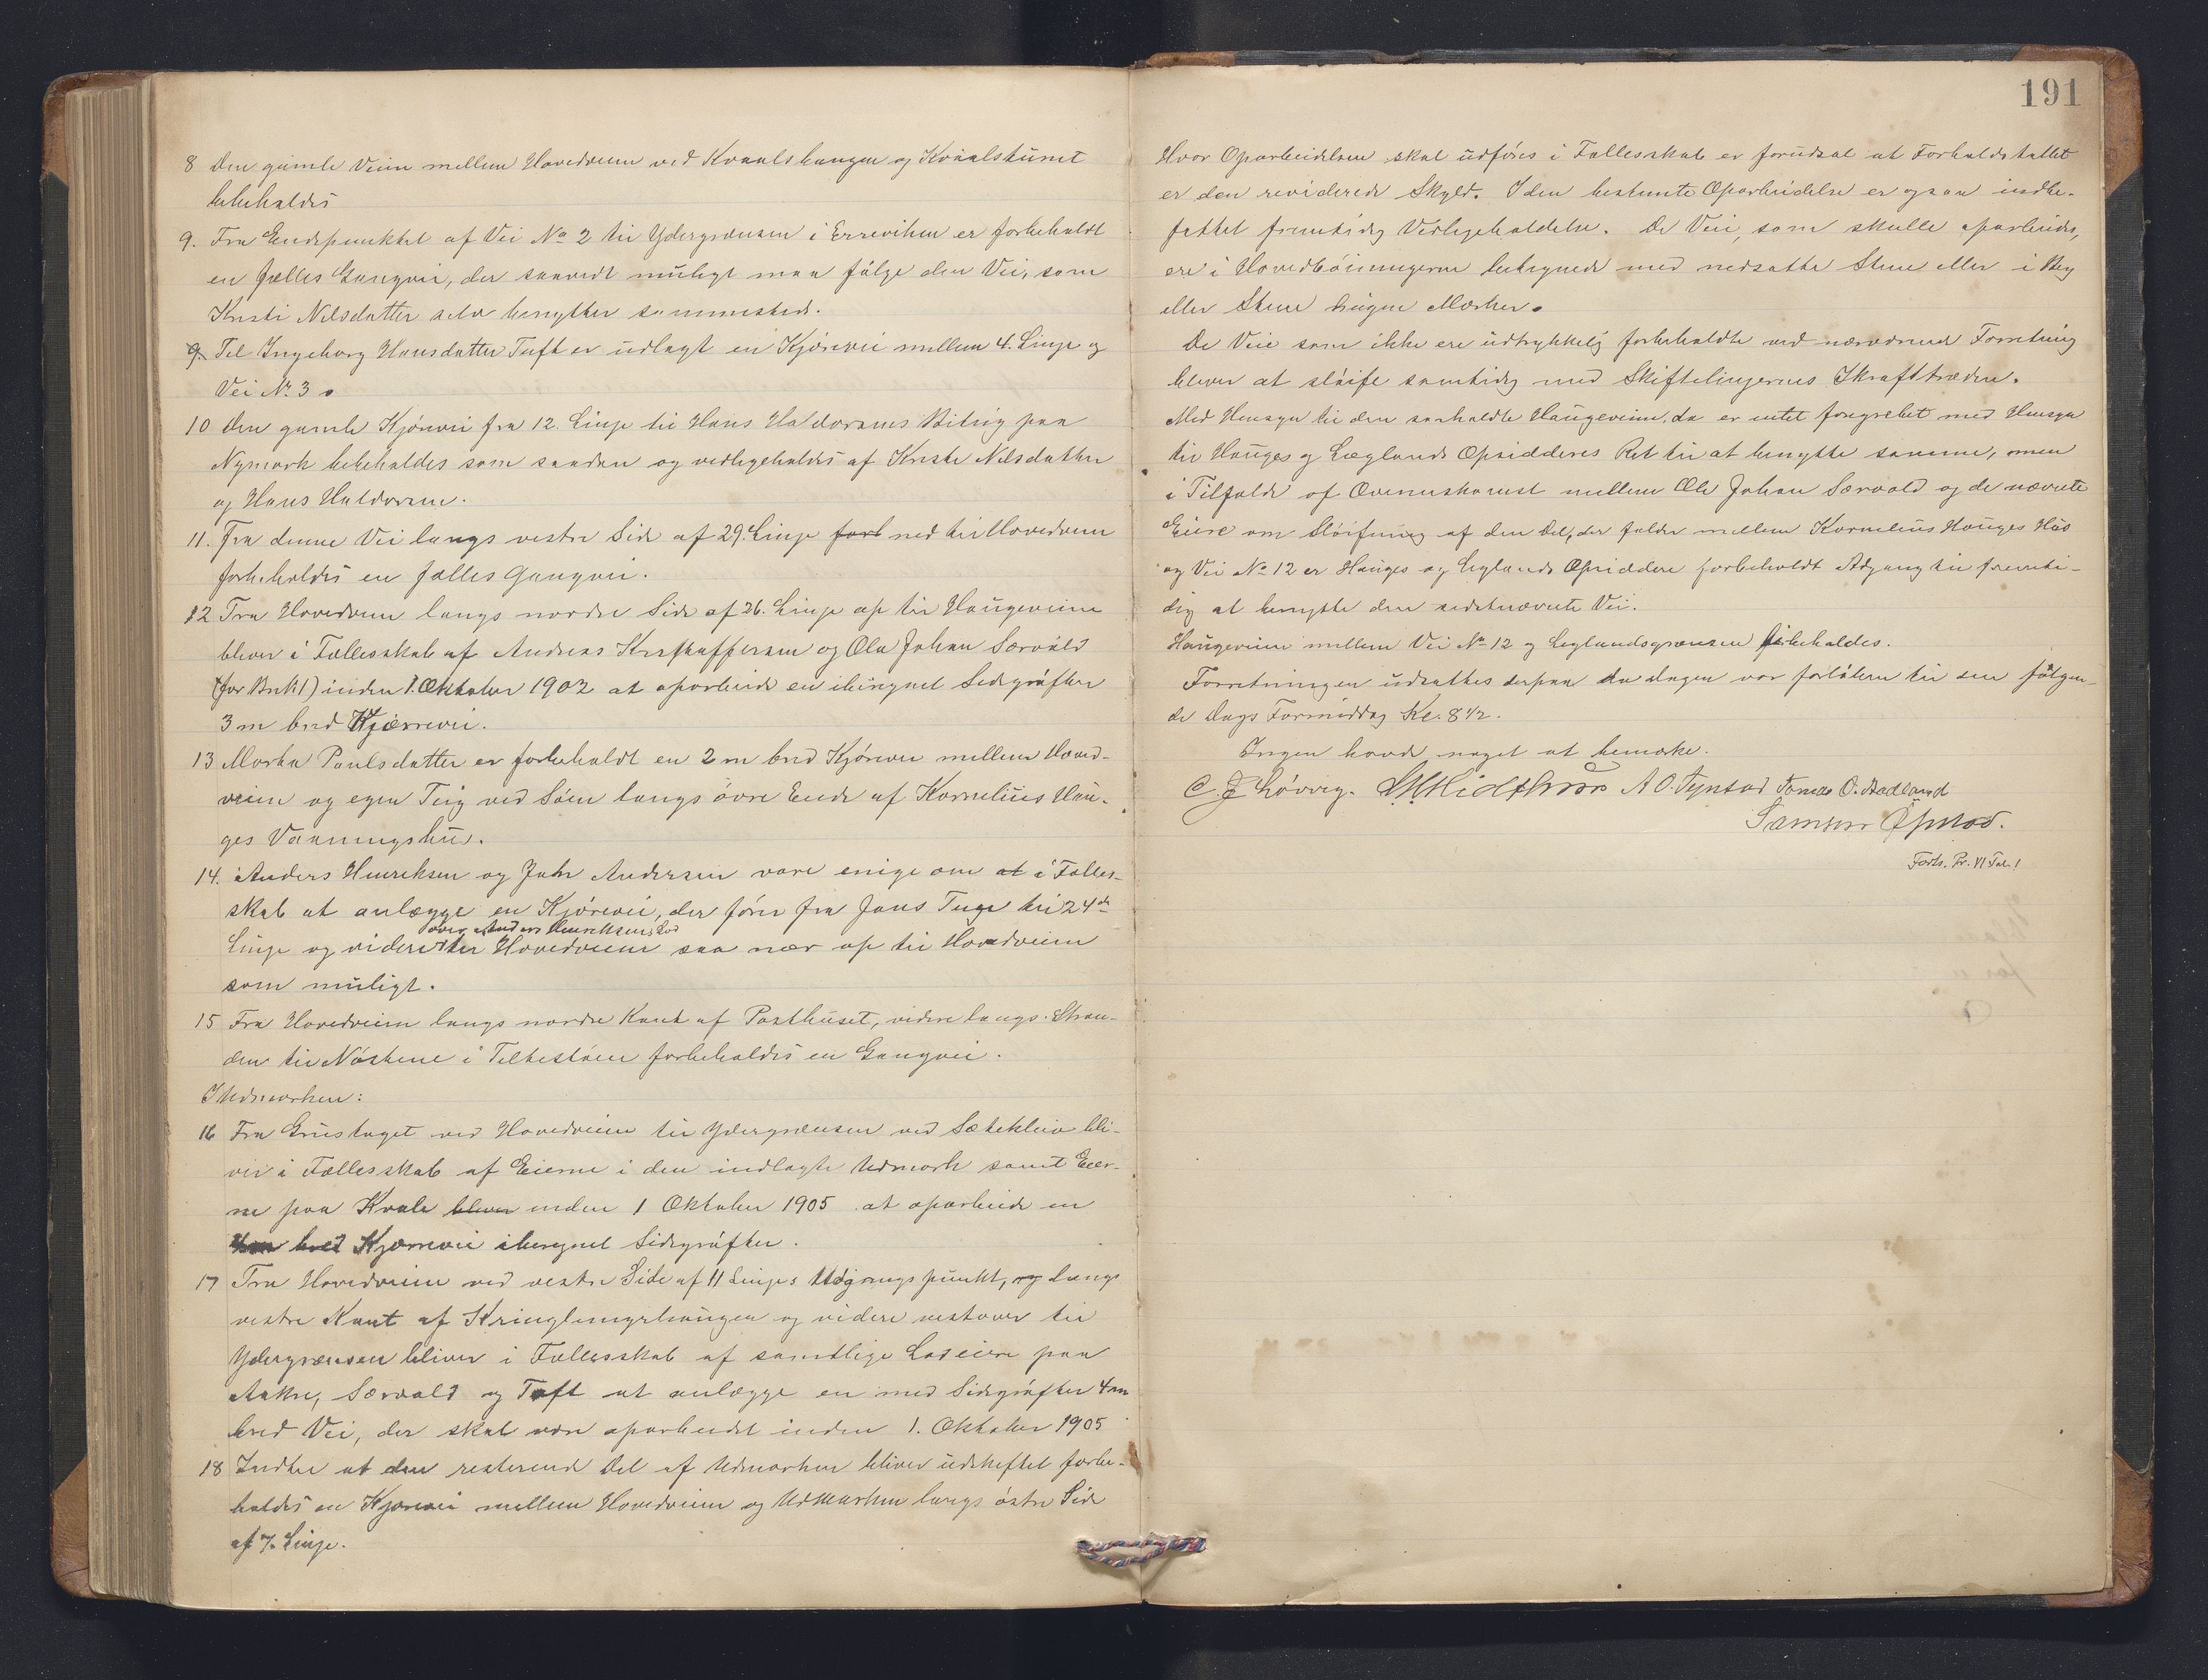 8 Den gamle Veien mellem Hovedveien ved Kvaalshaugen og Kvaalstunet
bibeholdes
9. Fra Endepunktet af Vei No 2 til Ydergrænsen i Erreviken er forbeholdt
en fælles Gangvei, der saavidt muligt maa følge den Vei, som
Kristi Nilsdatter selv benytter sammesteds.
9. Til Ingeborg Hansdatter Tuft er udlagt en Kjørevei mellem 4. Linje og
Vei No 3.
10 Den gamle Kjørevei fra 12. Linje til Hans Haldorsens Biteig paa
Nymark bibeholdes som saadan og vedligeholdes af Kristi Nilsdatter
og Hans Haldorsen.
11. Fra denne Vei langs vestre Side af 29. Linje fort ned til Hovedveien
forbeholdes en fælles Gangvei.
12 Fra Hovedveien langs nordre Side af 26. Linje op til Haugeveien
bliver i Fællesskab af Andreas Kristoffersen og Ole Johan Særvold
(for Bnk 1) inden 1. Oktober 1902 at oparbeide en iberegnet Sidegrøfter
3 m bred Kjørevei.
13 Marta Paulsdatter er forbeholdt en 2 m bred Kjørevei mellem Hoved-
veien og egen Teig ved Søen langs øvre Ende af Kornelius Hau-
ges Vaaningshus.
14. Anders Henriksen og Jahn Andersen vare enige om at i Fælles-
skab at anlægge en Kjørevei, der fører fra Jans Teige til 24de
over Anders Henriksens Lod
Linje og videre til Hovedveien saa nær op til Hovedveien
som muligt.
15 Fra Hovedveien langs nordre Kant af Posthuset, videre langs Stran-
den til Nøstene i Teltestøen forbeholdes en Gangvei.
I Udmarken:
16 Fra Grustaget ved Hovedveien til Ydergrænsen ved Sætekleiv bli-
ver i Fællesskab af Eierne i den indlagte Udmark samt Eier-
ne paa Kvale bliver inden 1 Oktober 1905 at oparbeide en
4 m bred Kjørevei iberegnet Sidegrøfter.
17 Fra Hovedveien ved vestre Side af 11 Linjes Udgangspunkt, og langs
vestre Kant af Kringlemyrhaugen og videre vestover til
Ydergrænsen bliver i Fællesskab af samtlige Lodeiere paa
Aakre, Særvold og Tuft at anlægge en med Sidegrøfter 4 m
bred Vei, der skal være oparbeidet inden 1. Oktober 1905
18 Indtil at den resterende Del af Udmarken bliver udskiftet forbe-
holdes en Kjørevei mellem Hovedveien og Udmarken langs østre Side
af 7. Linje.
191
Hvor Oparbeidelsen skal udføres i Fællesskab er forudsat at Forholdstallet
er den reviderede Skyld. I den bestemte Oparbeidelse er ogsaa indbe-
fattet fremtidig Vedligeholdelse. De Veie, som skulle oparbeides,
ere i Hovedbøiningerne betegnede med nedsatte Stene eller i Berg
eller Stene hugne Mærker.
De Veie som ikke ere udtrykkelig forbeholdte ved nærværende Forretning
bliver at sløife samtidig med Skiftelinjernes Ikrafttræden.
Med Hensyn til den saakaldte Haugeveien, da er intet foregrebet med Hensyn
til Hauges og Læglands Opsidderes Ret til at benytte samme, men
i Tilfælde af Overenskomst mellem Ole Johan Særvold og de nævnte
Eiere om Sløifning af den Del, der falder mellem Kornelius Hauges Hus
og Vei No 12 er Hauges og Leglands Opsiddere forbeholdt Adgang til fremti-
dig at benytte den sidstnævnte Vei.
Haugeveien mellem Vei No 12 og Leglandsgrænsen bibeholdes.
Forretningen udsattes derpaa da Dagen var forløben til den følgen-
de Dags Formiddag Kl. 8 1/2.
Ingen havde noget at bemærke.
C. J. Løvvig. A O. Tynsad Tomas O. Rødland
Samson
Forts. Pr. VI Fol. 1